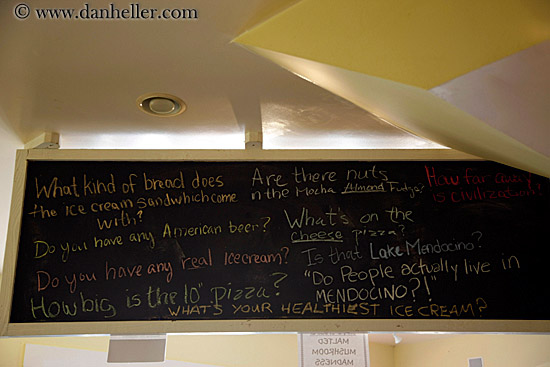 © www.danheller.com
What kind of bread does
the ice cream sandwhich come
with?
Do you have any American beer?
Do you have any real Ice cream?
How big is the 10" pizza?
Are there nuts
in the Mocha Almond Fudge?
What's on the
cheese pizza?
Is that Lake Mendocino?
"Do People actually live in
MENDOCINO?!"
How far away
is civilization?!
WHAT'S YOUR HEALTHIEST ICE CREAM?
MALTED
MUSHROOM
MADNESS